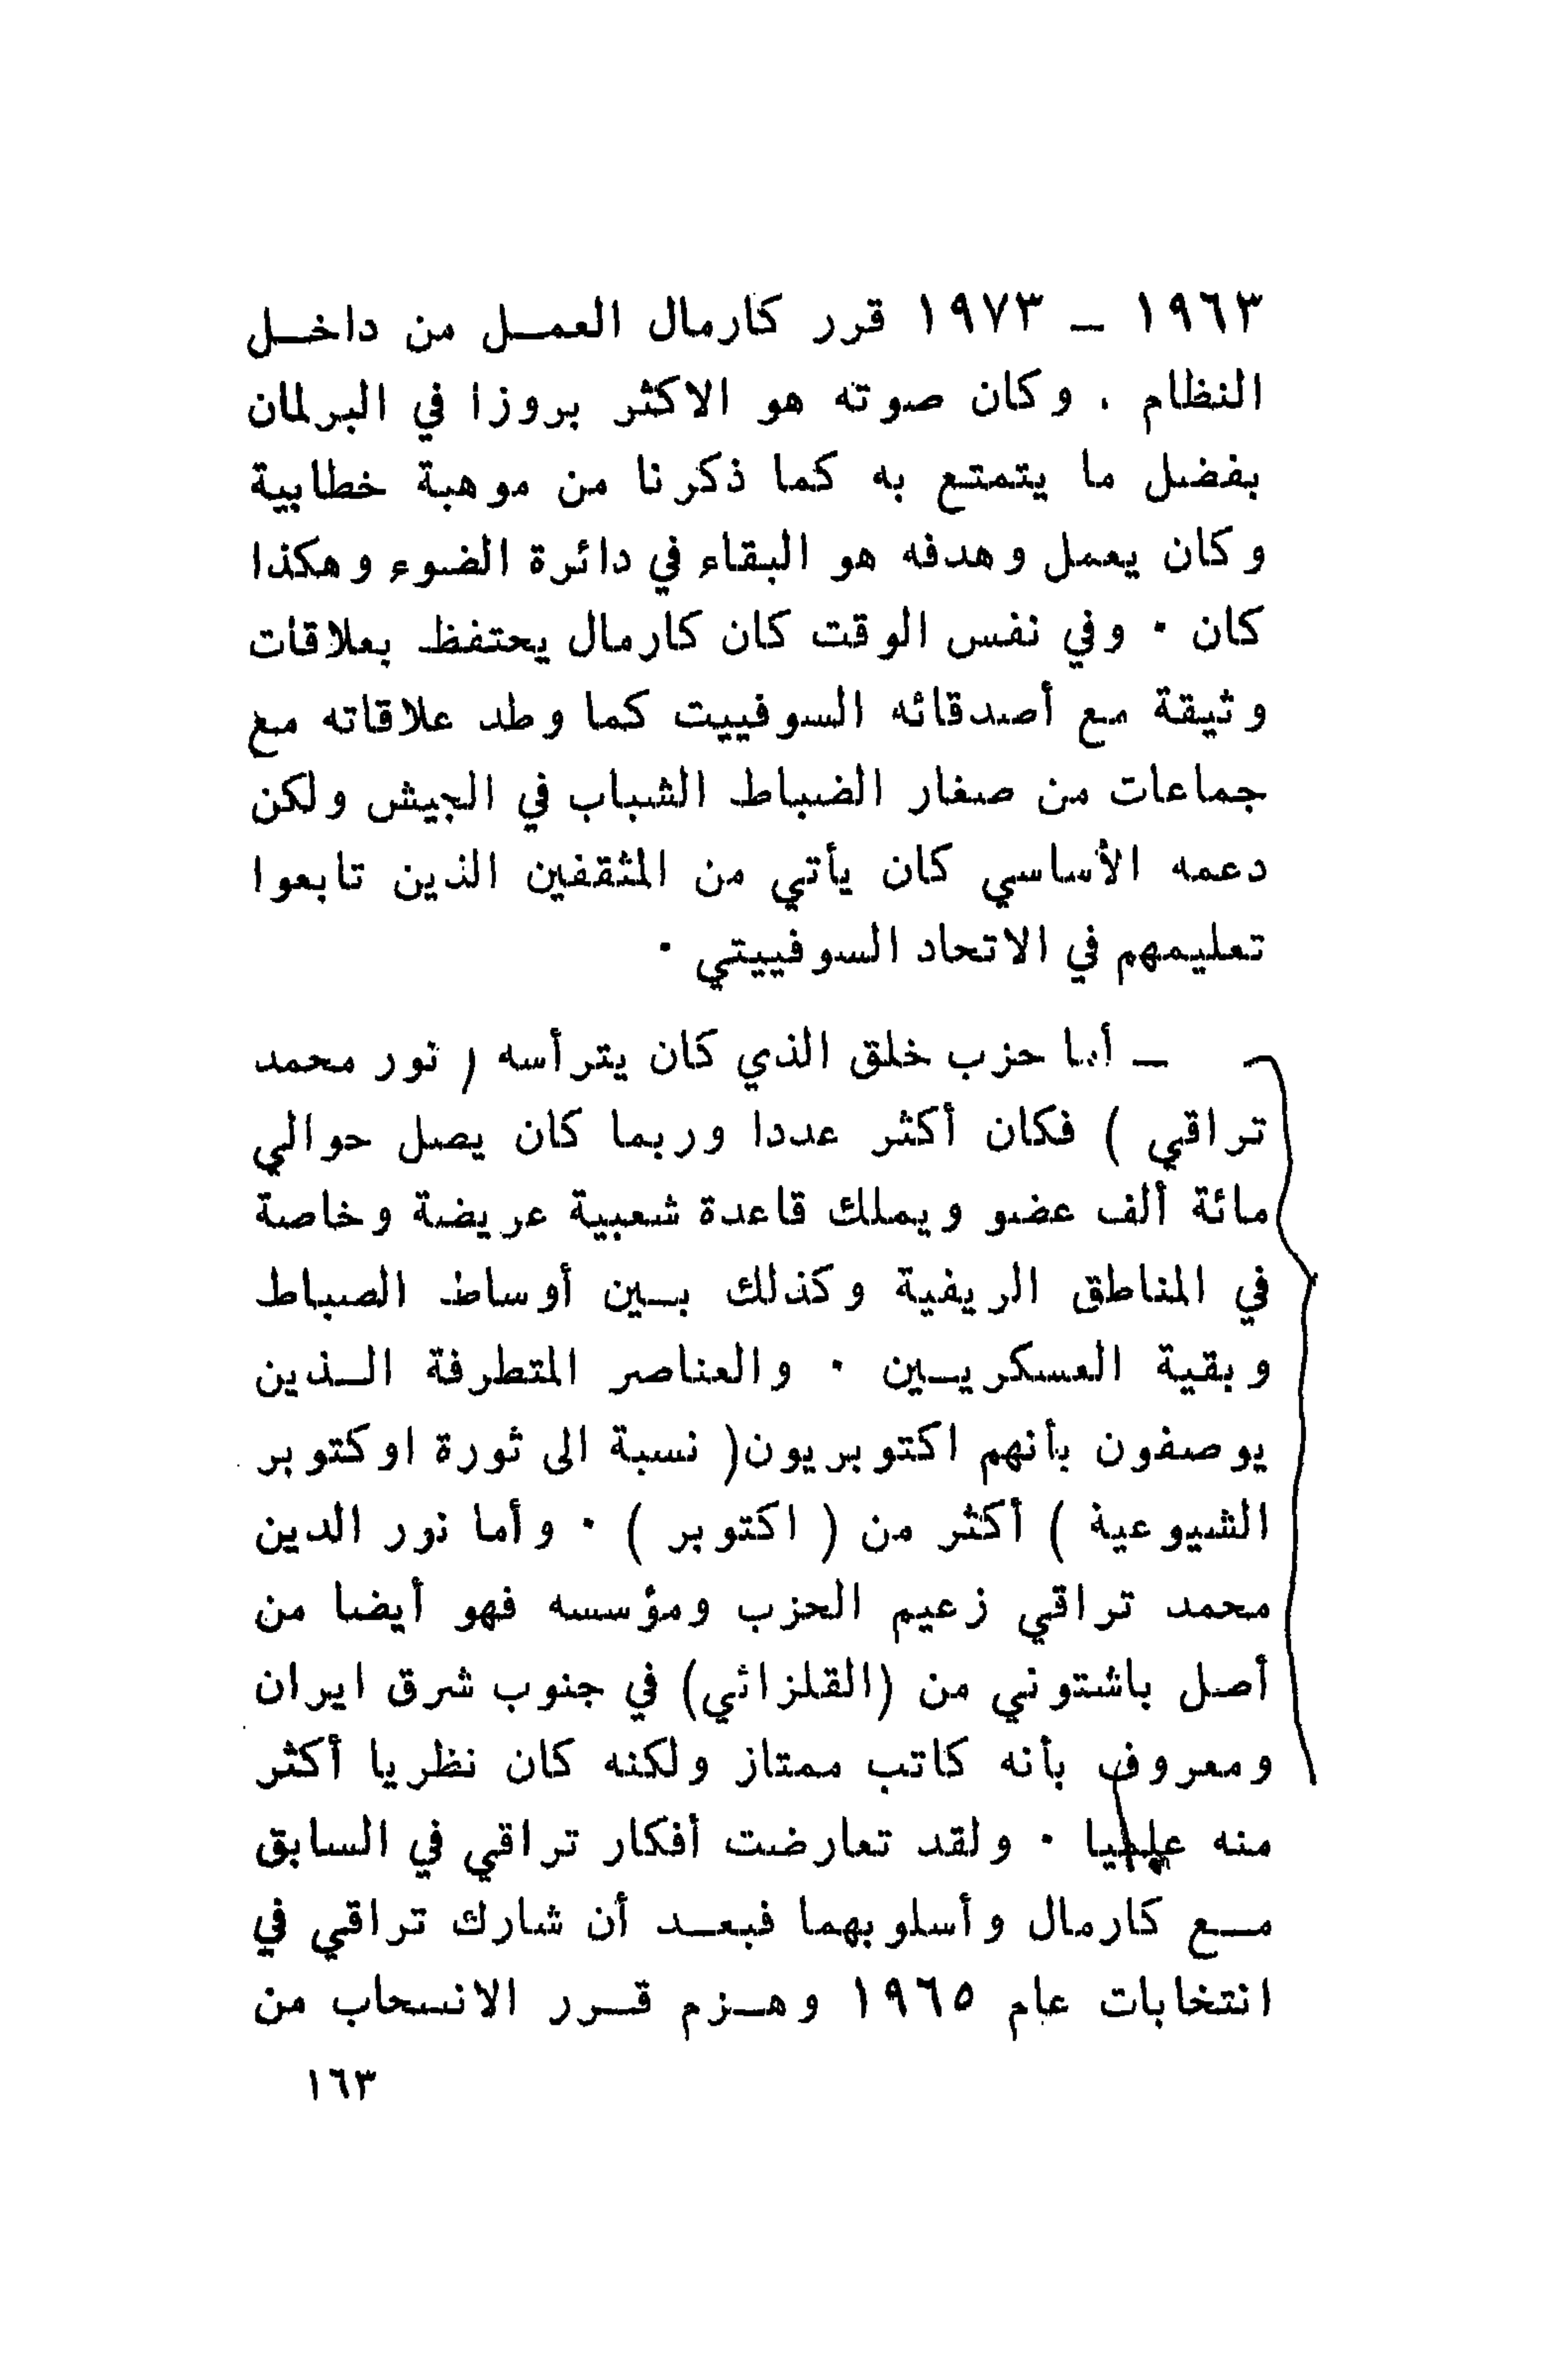 ١٩٦٣ ــ ١٩٧٣ قرر كارمال العمــل من داخــل
النظام . وكان صوته هو الاكثر بروزا في البرلمان
بفضل ما يتمتع به كما ذكرنا من موهبة خطابية
وكان يعمل وهدفه هو البقاء في دائرة الضوء وهكذا
كان . وفي نفس الوقت كان كارمال يحتفظ بعلاقات
وثيقة مع أصدقائه السوفييت كما وطد علاقاته مع
جماعات من صغار الضباط الشباب في الجيش ولكن
دعمه الأساسي كان يأتي من المثقفين الذين تابعوا
تعليمهم في الاتحاد السوفييتي .
ــ أما حزب خلق الذي كان يترأسه ( نور محمد
تراقي ) فكان أكثر عددا وربما كان يصل حوالي
مائة ألف عضو ويملك قاعدة شعبية عريضة وخاصة
في المناطق الريفية وكذلك بــين أوساط الضباط
وبقية العسكريــين . والعناصر المتطرفة الــذين
يوصفون بأنهم اكتوبريون( نسبة الى ثورة اوكتوبر
الشيوعية ) أكثر من ( اكتوبر ) . وأما نور الدين
محمد تراقي زعيم الحزب ومؤسسه فهو أيضا من
أصل باشتوني من (القلزائي) في جنوب شرق ايران
ومعروف بأنه كاتب ممتاز ولكنه كان نظريا أكثر
منه . ولقد تعارضت أفكار تراقي في السابق
مــع كارمال وأسلوبهما فبعــد أن شارك تراقي في
انتخابات عام ١٩٦٥ وهــزم قــرر الانسحاب من
١٦٣